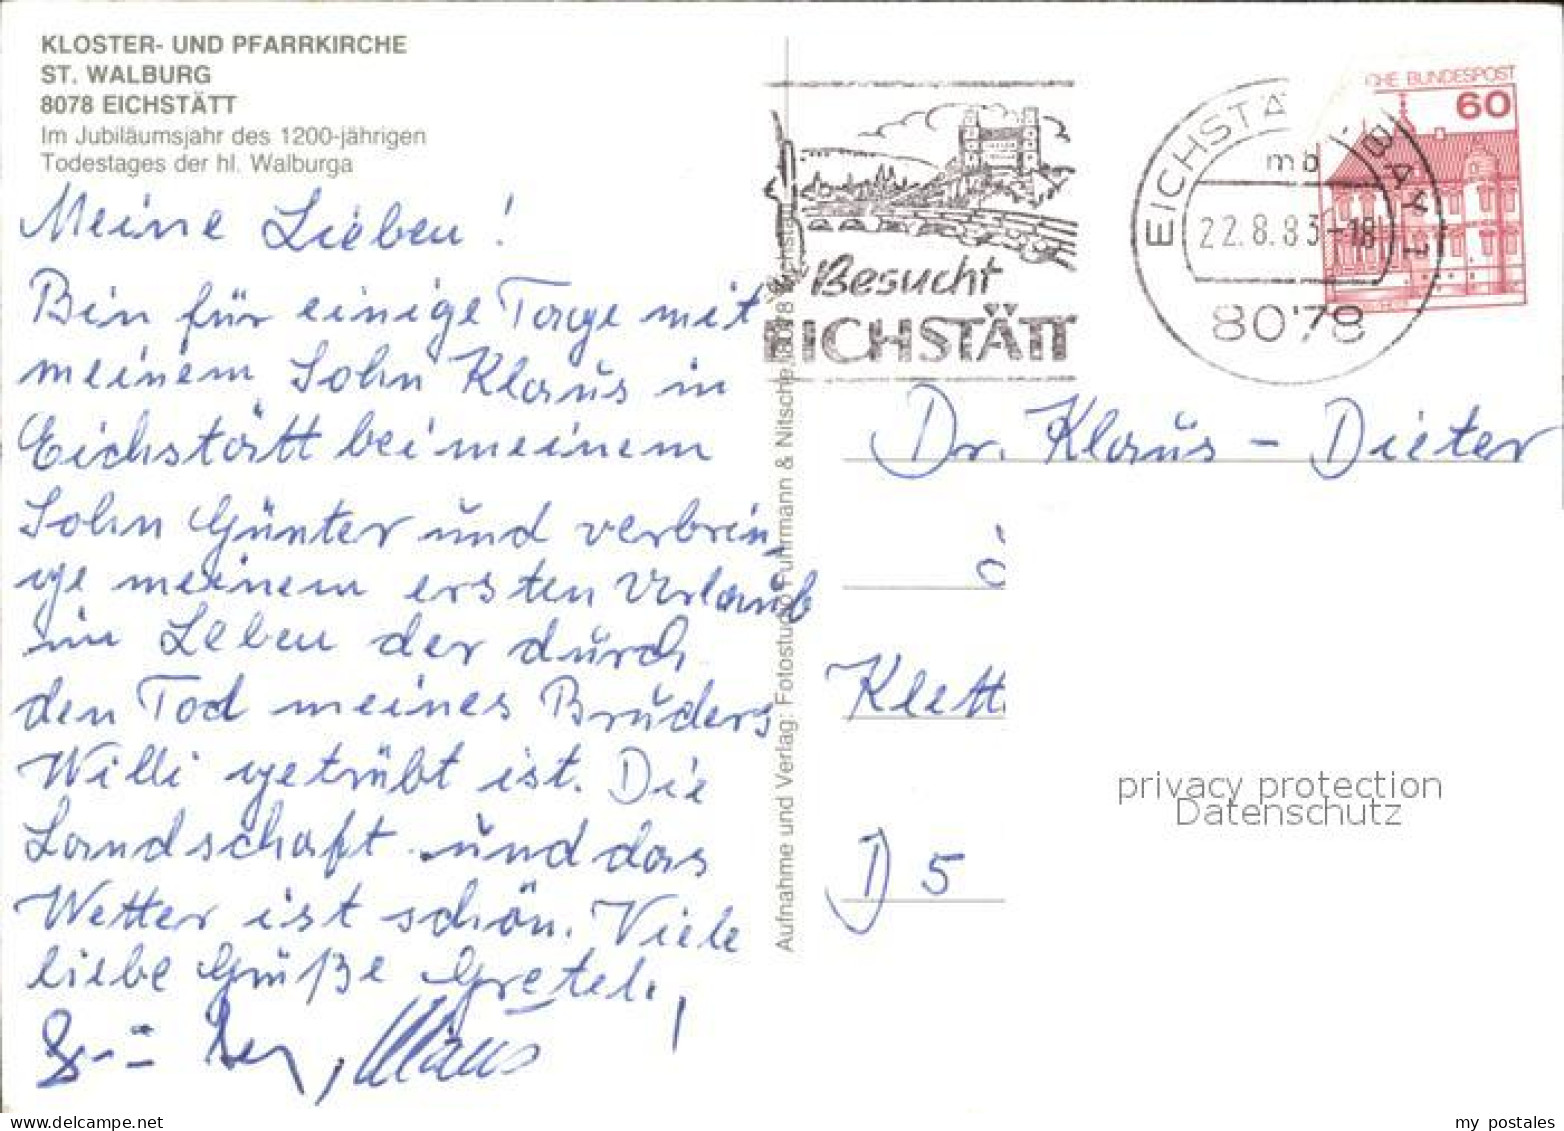 KLOSTER- UND PFARRKIRCHE
ST. WALBURG
8078 EICHSTÄTT
Im Jubiläumsjahr des 1200-jährigen
Todestages der hl. Walburga
Meine Lieben!
Bin für einige Tage mit
meinem Sohn Klaus in
Eichstätt bei meinem
Sohn Günter und verbrin-
ge meinem ersten Urlaub
im Leben der durch
den Tod meines Bruders
Willi getrübt ist. Die
Landschaft und das
Wetter ist schön. Viele
liebe Grüße Gretel.
Klaus
Aufnahme und Verlag: Fotostudio Fuhrmann & Nitsche, 8078 Eichstätt
Besucht
EICHSTÄTT
EICHSTÄTT, BAY 1
mb
22.8.83-18
8078
CHE BUNDESPOST
60
Dr. Klaus-Dieter
Klett
D 5
privacy protection
Datenschutz
my postales